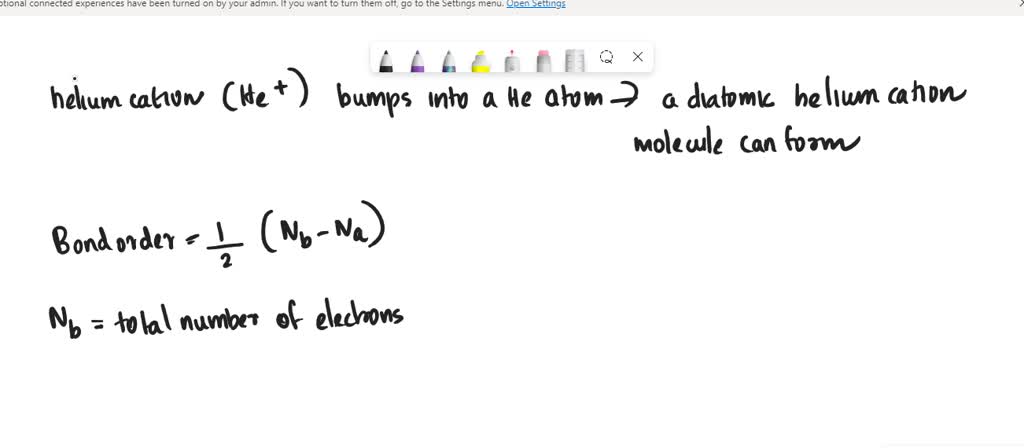 ptional connected experiences have been turned on by your admin. If you want to turn them off, go to the Settings menu. Open Settings
helium cation (He+) bumps into a He atom → a diatomic helium cation
molecule can form
Bond order = 1/2 (Nb - Na)
Nb = total number of electrons